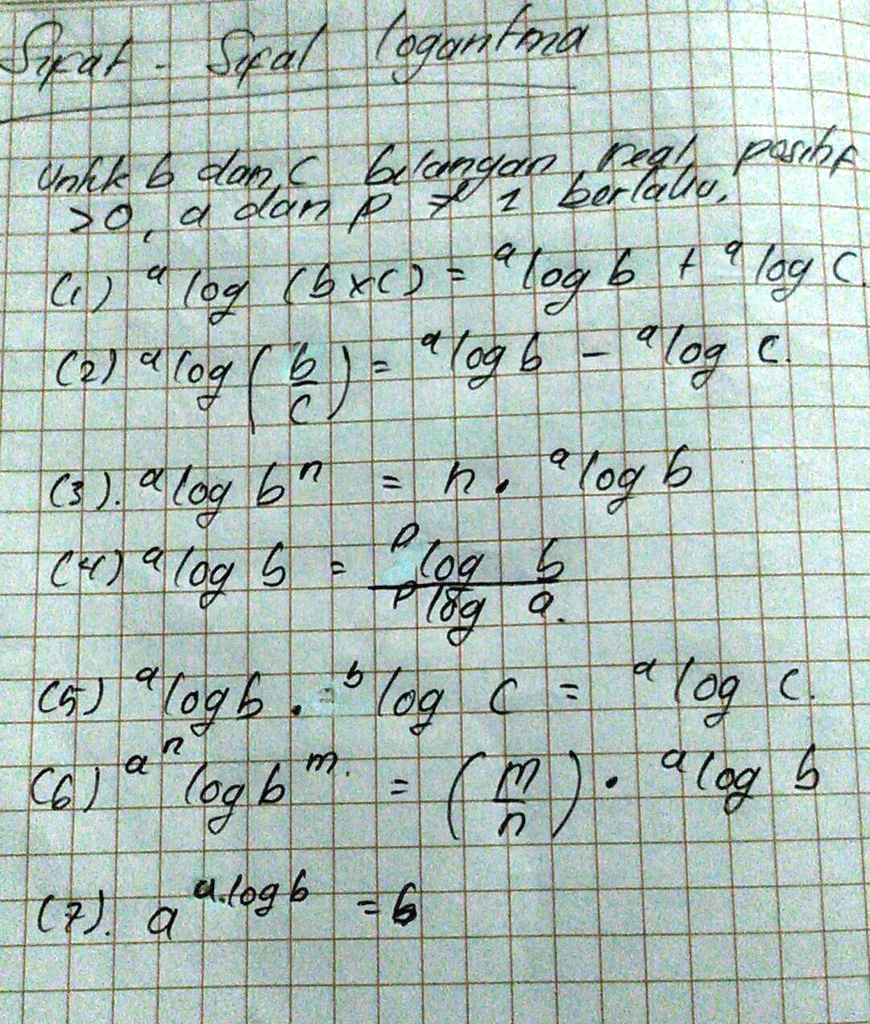 Sifat - Sifat logaritma
Untuk b dan C bilangan real positif
>0, a dan p ≠ 1 berlaku,
(1) ᵃlog (b×c) = ᵃlog b + ᵃlog C.
(2) ᵃlog (b/c) = ᵃlog b - ᵃlog c.
(3). ᵃlog bⁿ = n . ᵃlog b
(4) ᵃlog b = ᵖlog b / ᵖlog a.
(5) ᵃlog b . ᵇlog c = ᵃlog c.
(6) a^n log b^m. = (m/n) . ᵃlog b
(7). a^(a.log b) = b